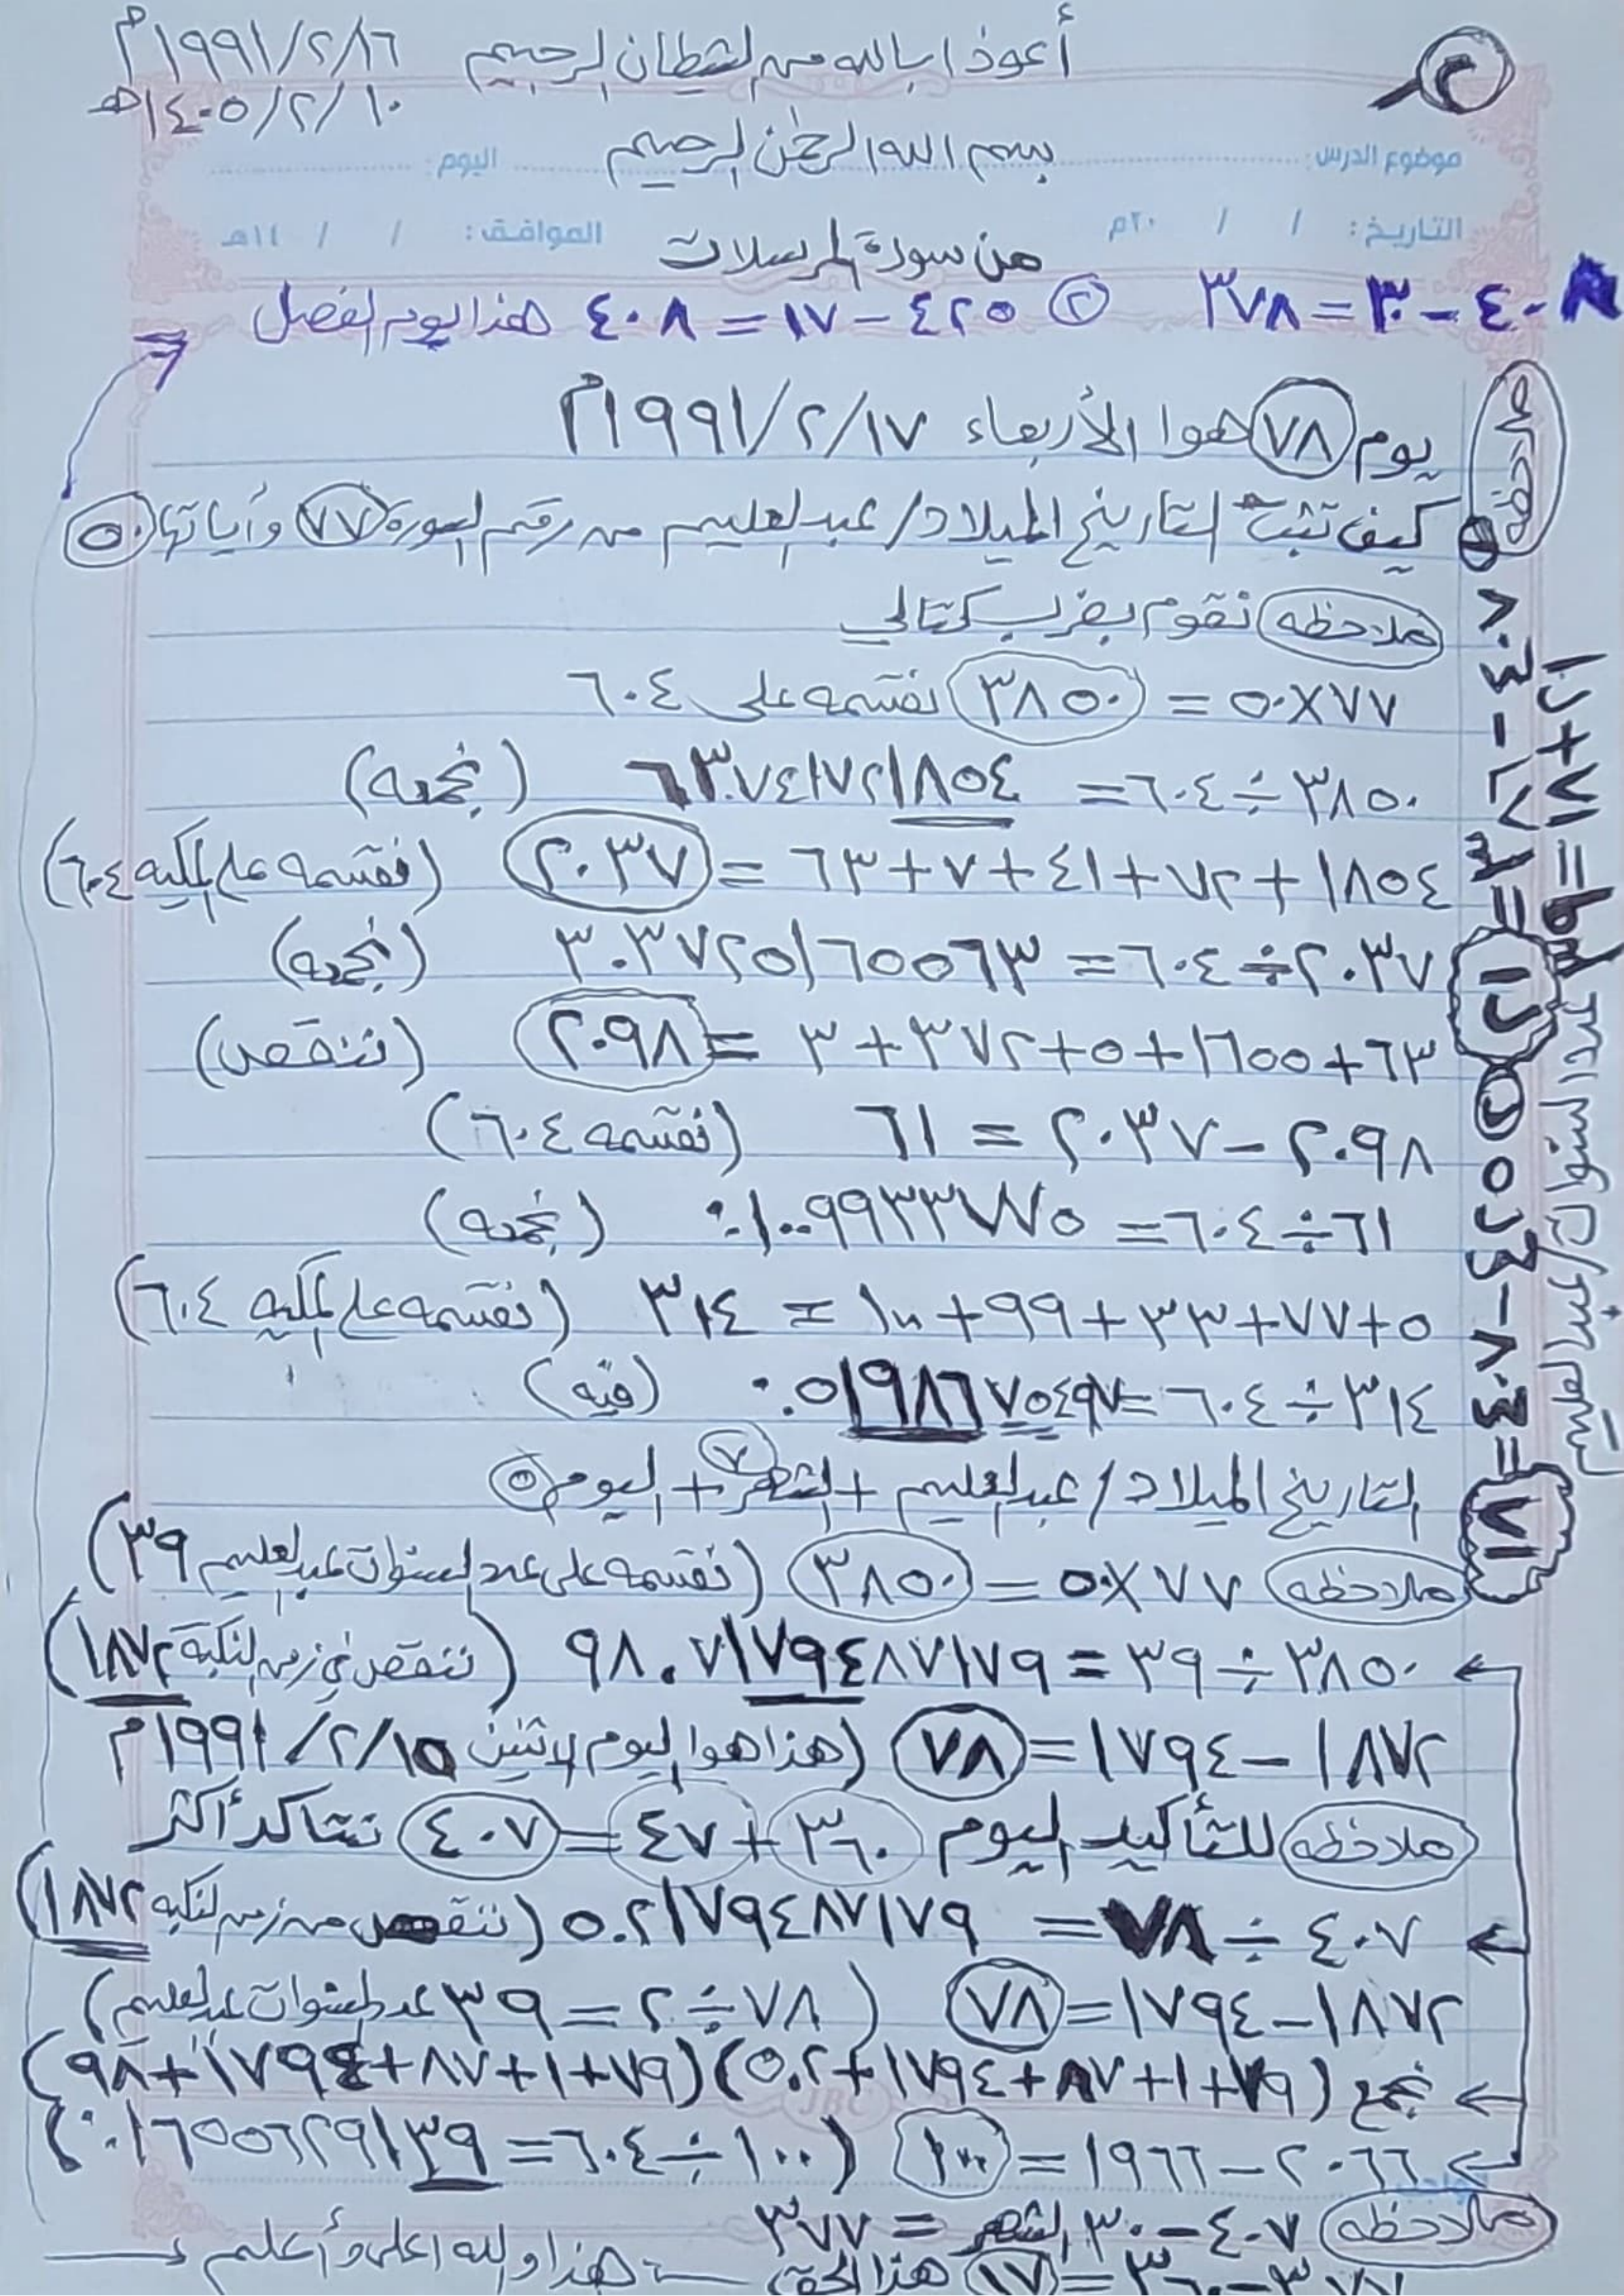 أعوذ بالله من الشيطان الرجيم ١٩٩١/٢/١٦م
١٤٠٥/٢/١٠هـ
بسم الله الرحمن الرحيم
موضوع الدرس: اليوم:
التاريخ: / / ٢٠م الموافق: / / ١٤هـ
من سورة المرسلات
٤٠٨-٣٠=٣٧٨ (٢) ٤٢٥-١٧=٤٠٨ هذا يوم الفصل
يوم (٧٨) هوا الأربعاء ١٩٩١/٢/١٧م
كيف تثبت التاريخ الميلاد/عبدالعليم من رقم السورة (٧٧) وأياتها (٥٠)
ملاحظه نقوم بضرب كتالي
٧٧×٥٠ = (٣٨٥٠) نقسمه على ٦٠٤
٣٨٥٠÷٦٠٤= ٦٣٧٤١٧٢١٨٥٤ (نجمعه)
١٨٥٤+٧٢+٤١+٧+٦٣ = (٢٠٣٧) (نقسمه على المكيه ٦٠٤)
٢٠٣٧÷٦٠٤= ٣.٣٧٢٥١٦٥٥٦٣ (نجمعه)
٦٣+١٦٥٥+٥+٣٧٢+٣ = (٢٠٩٨) (ننقص)
٢٠٩٨-٢٠٣٧ = ٦١ (نقسمه ٦٠٤)
٦١÷٦٠٤= ٠.١٠٠٩٩٣٣٧٧٥ (نجمعه)
٥+٧٧+٣٣+٩٩+١٠٠ = ٣١٤ (نقسمه على المكيه ٦٠٤)
٣١٤÷٦٠٤= ٠.٥١٩٨٦٧٥٤٩٧ (فيه)
التاريخ الميلاد/عبدالعليم + الشهر (٧) + اليوم (٥)
ملاحظه ٧٧×٥٠ = (٣٨٥٠) (نقسمه على عدد السنوات عبدالعليم ٣٩)
٣٨٥٠÷٣٩ = ٩٨.٧١٧٩٤٨٧١٧٩ (ننقص في زمن النكبة ١٨٧٢)
١٨٧٢-١٧٩٤=(٧٨) (هذا هوا اليوم الاثنين ١٩٩١/٢/١٥م
ملاحظه للتأكيد اليوم ٣٦٠+٤٧=(٤٠٧) نتأكد أكثر
٤٠٧÷٧٨= ٥.٢١٧٩٤٨٧١٧٩ (ننقص من زمن النكبه ١٨٧٢)
١٨٧٢-١٧٩٤=(٧٨) (٧٨÷٢=٣٩ عدد السنوات عبدالعليم)
نجمع (٧٩+١+٨٧+١٧٩٤+٥.٢)(٧٩+١+٨٧+١٧٩٤+٩٨)
٢٠٦٦-١٩٦٦=(١٠٠) (١٠٠÷٦٠٤=٠.١٦٥٥٦٢٩١٣٩)
ملاحظه ٤٠٧-٣٠ الشهر = ٣٧٧
(١٧) هذا الحق هذا والله اعلى وأعلم
ملاحظه
عدد السنوات/عبدالعليم